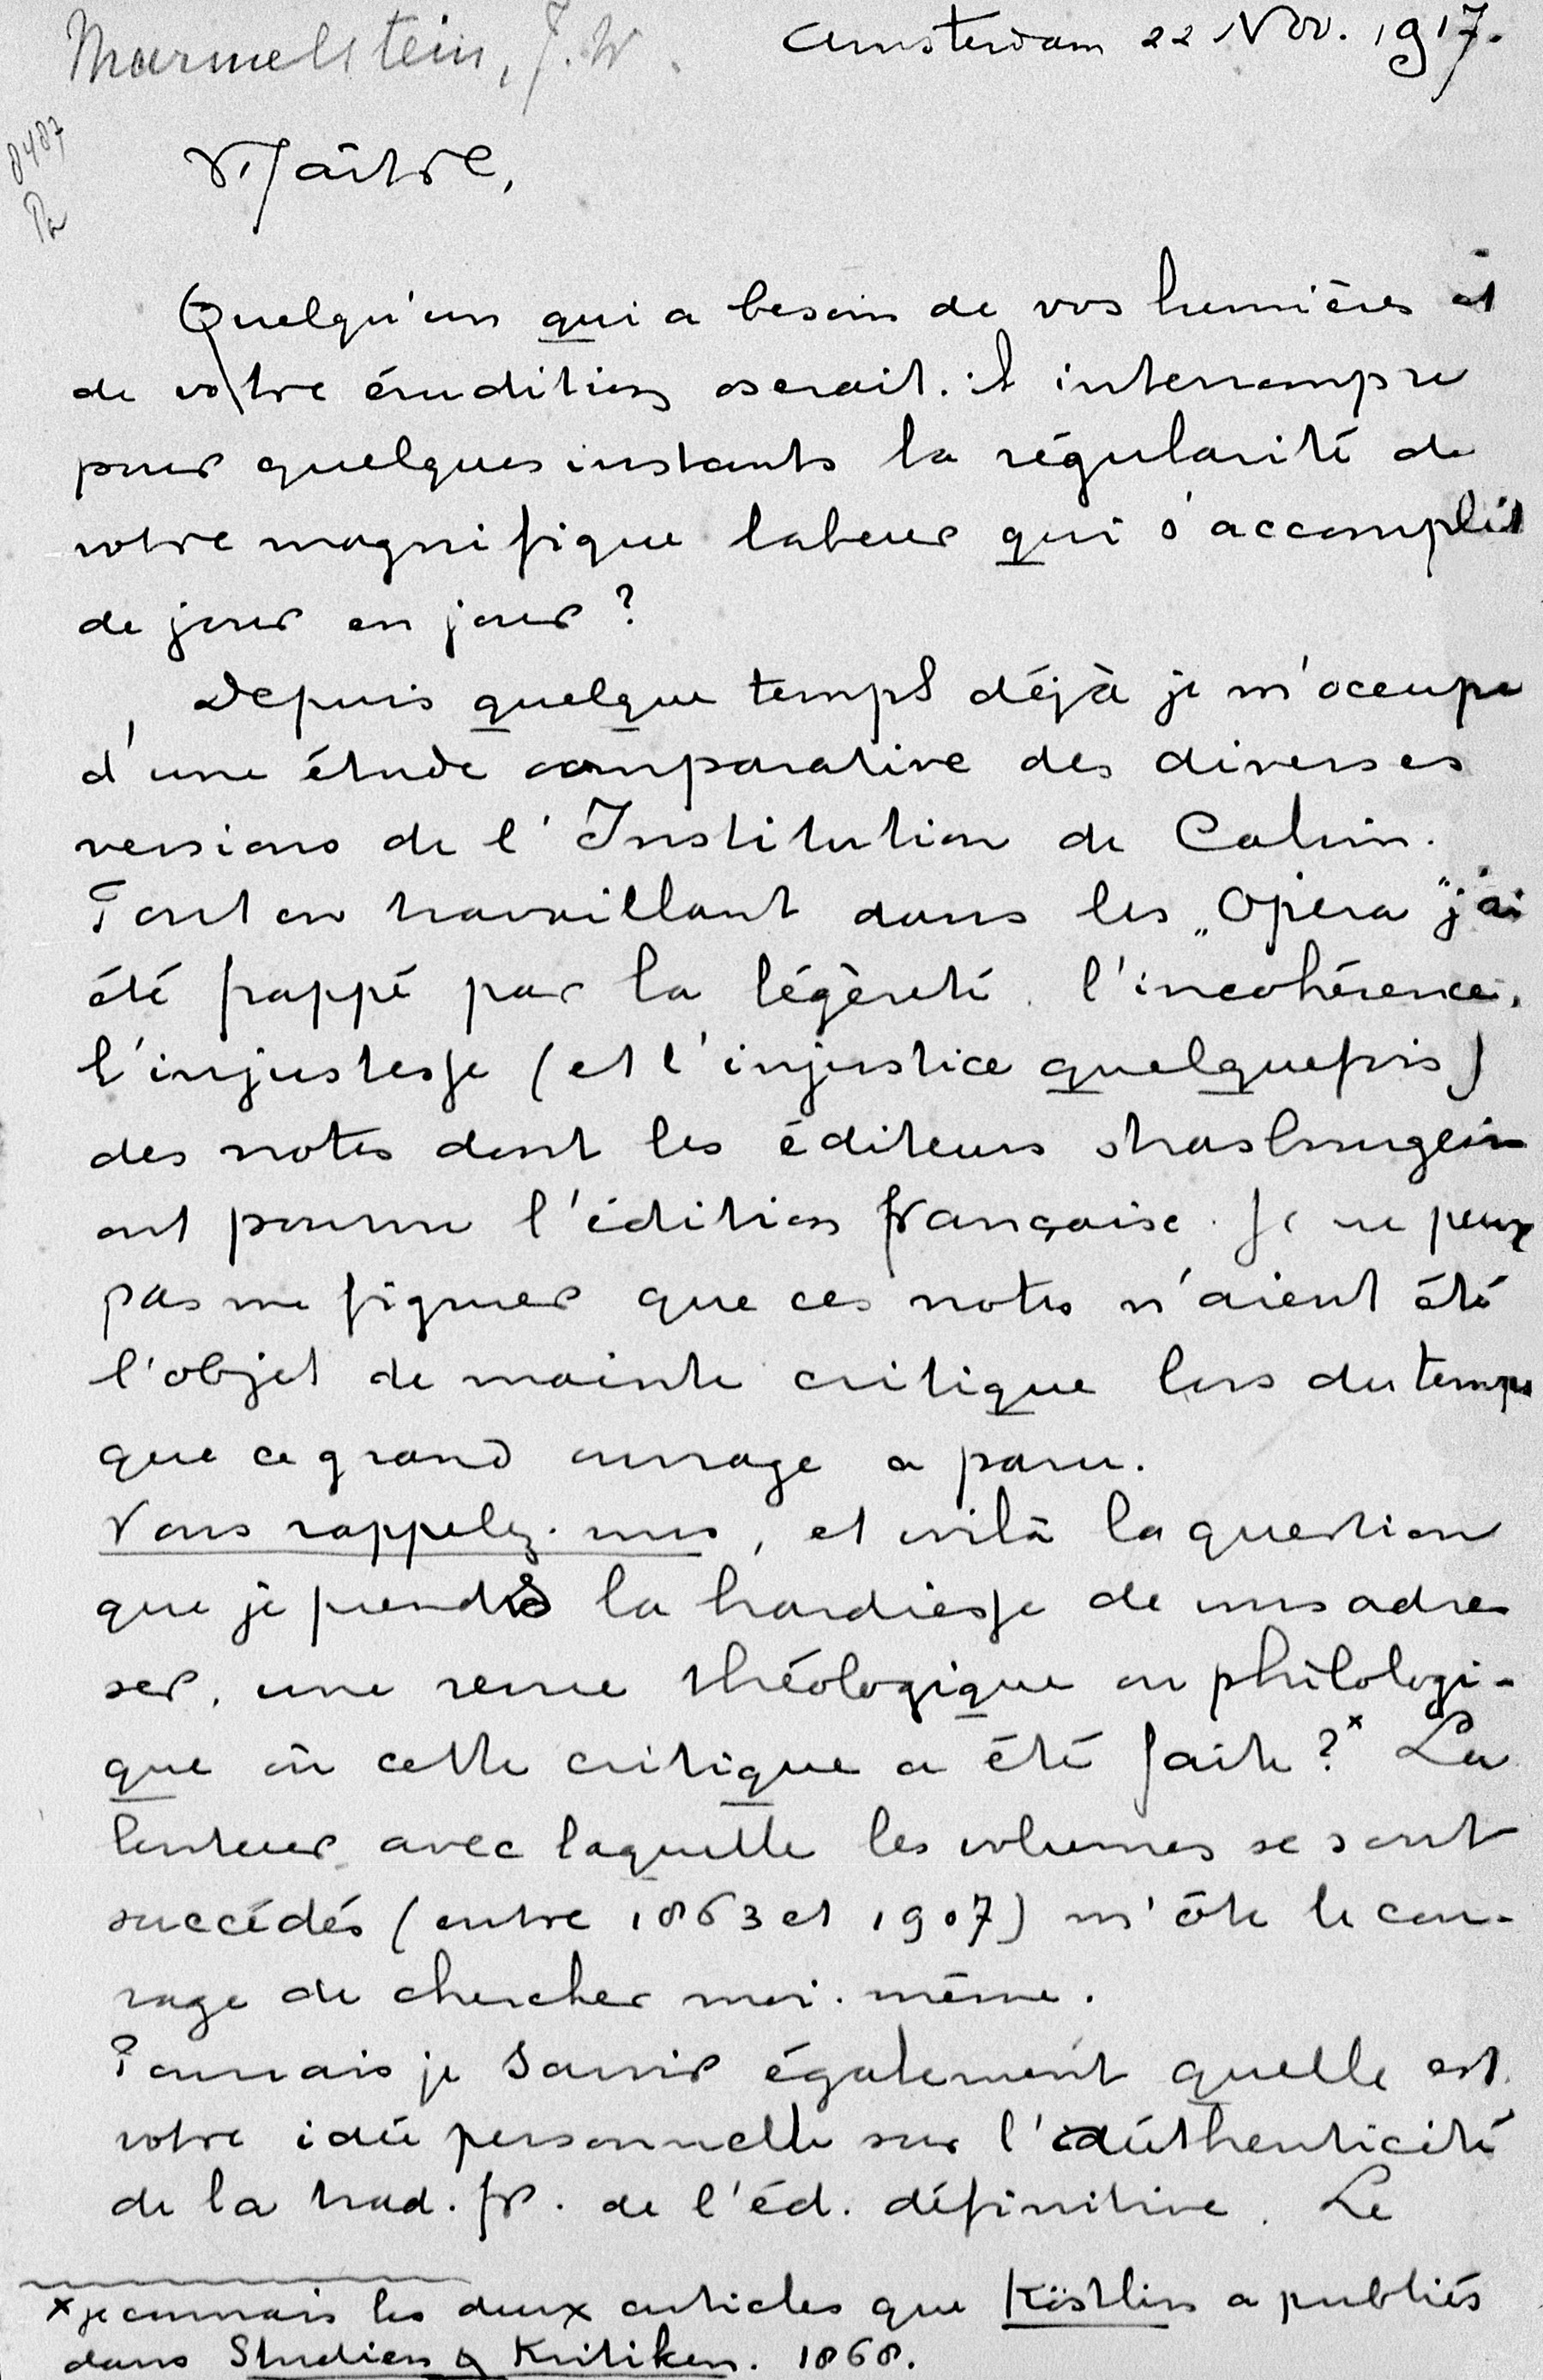 Marmelstein, J. W.
Amsterdam 22 Nov. 1917.
8487
Maître,
Quelqu'un qui a besoin de vos lumières et
de votre érudition oserait-il interrompre
pour quelques instants la régularité de
votre magnifique labeur qui s'accomplit
de jour en jour?
Depuis quelque temps déjà je m'occupe
d'une étude comparative des diverses
versions de l'Institution de Calvin.
Tout en travaillant dans les „Opera" j'ai
été frappé par la légèreté, l'incohérence,
l'injustesse (et l'injustice quelquefois)
des notes dont les éditeurs strasbourgeois
ont pourvu l'édition française. Je ne peux
pas me figurer que ces notes n'aient été
l'objet de mainte critique lors du temps
que ce grand ouvrage a paru.
Vous rappelez-vous, et voilà la question
que je prends la hardiesse de vous adres
ser, une revue théologique ou philologi-
que où cette critique a été faite?x La
lenteur avec laquelle les volumes se sont
succédés (entre 1863 et 1907) m'ôte le cou-
rage de chercher moi-même.
Pourrais je savoir également quelle est
votre idée personnelle sur l'authenticité
de la trad. fr. de l'éd. définitive. Le
x je connais les deux articles que Köstlin a publiés
dans Studien & Kritiken. 1868.